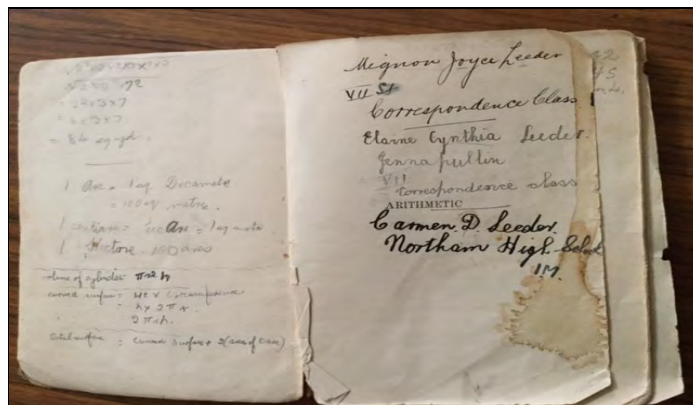 = 2²x3x7
= 4x3x7
= 84 sq. yds.
1 Are = 1 sq. Decametre
= 100 sq metres.
1 centiare = Are = 1 sq metre
1 Hectare 100 ares
volume of cylinder πr²h
curved surface = Ht x Circumference
= h x 2πr.
2πrh.
total surface = curved surface + 2(area of base)
Mignon Joyce Leeder
VII St
Correspondence Class
Elaine Cynthia Leeder.
Jennapullin
VII
Correspondence class
ARITHMETIC
Carmen D. Leeder.
Northam High School
1M.